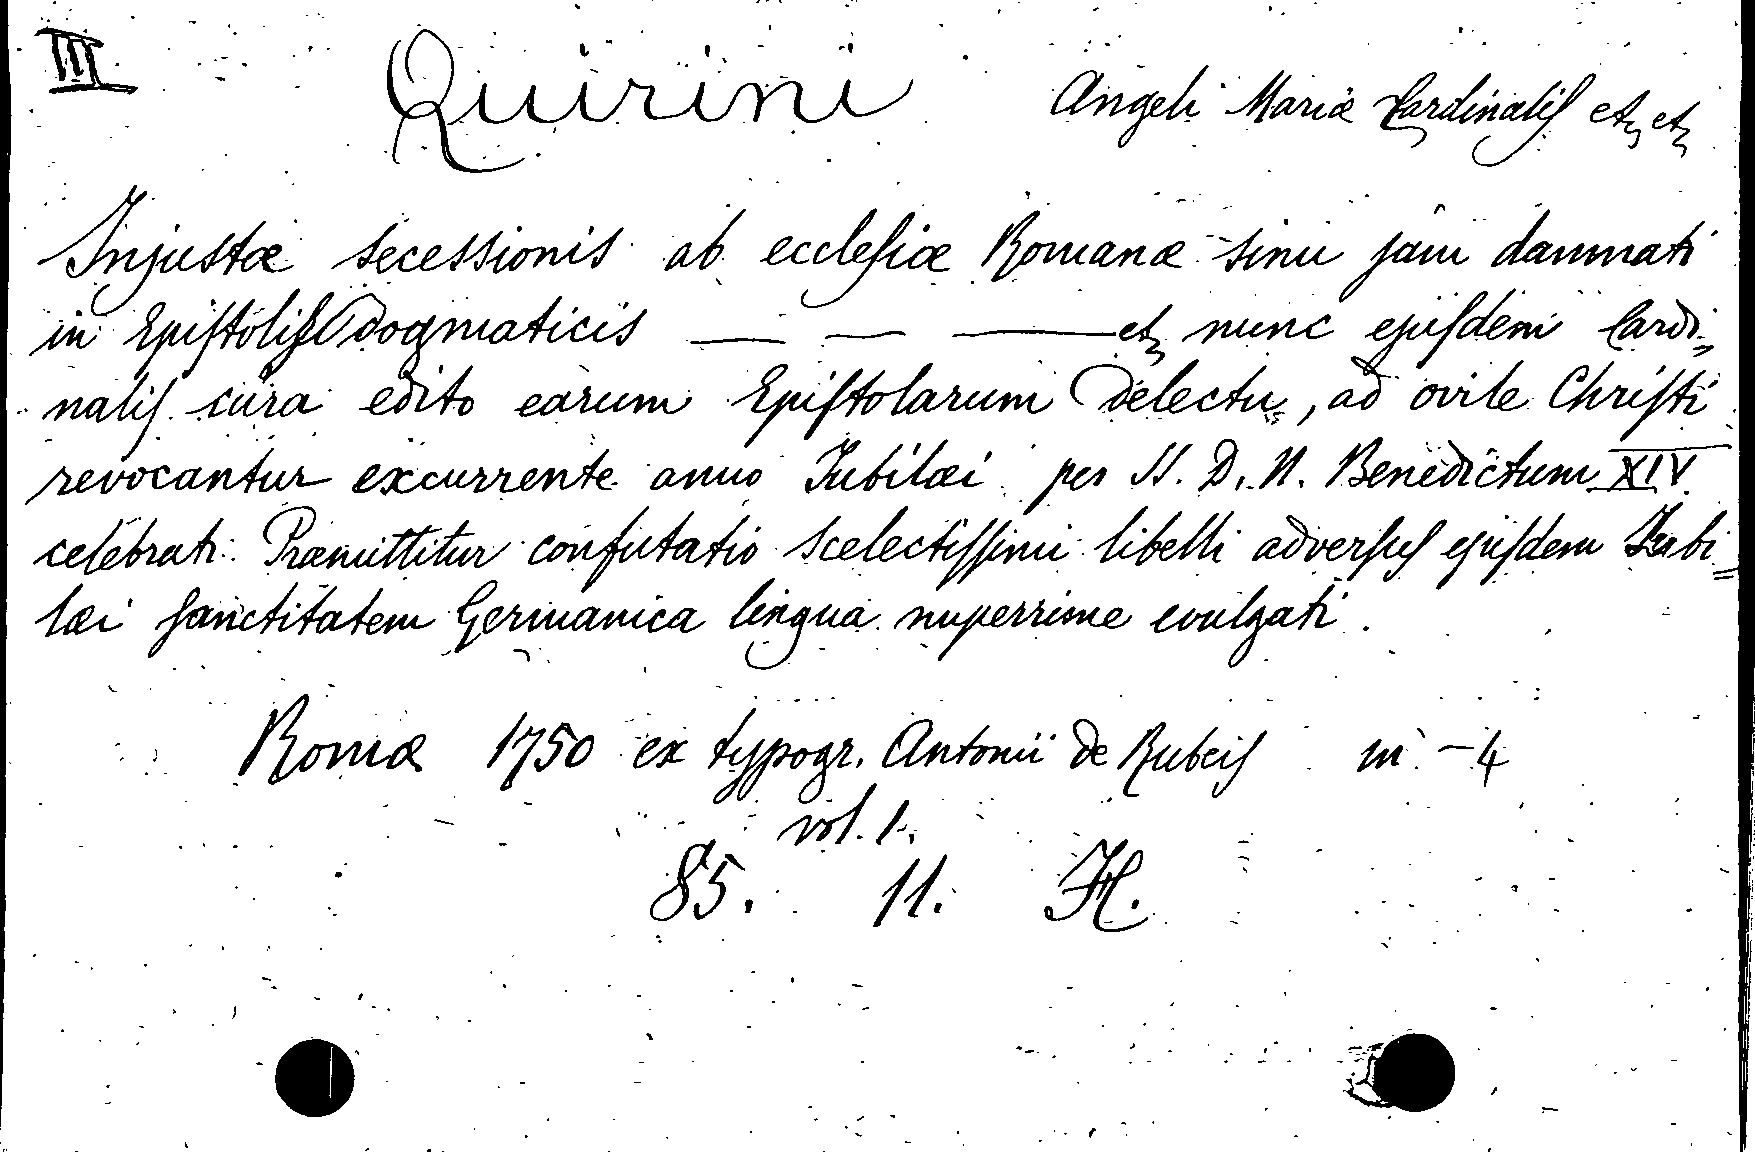 III Quirini Angeli Mariæ Cardinalis etc etc
Injustæ secessionis ab ecclesiæ Romanæ sinu jam damnati
in Epistolis dogmaticis — — — etc nunc ejusdem Cardi-
nalis cura edito earum Epistolarum Delectu, ad ovile Christi
revocantur excurrente anno Iubilæi per SS. D. N. Benedictum XIV
celebrati. Præmittitur confutatio scelectissimi libelli adversus ejusdem Iubi=
læi sanctitatem Germanica lingua nuperrime evulgati.
Romæ 1750 ex typogr. Antonii de Rubeis in - 4
vol. 1.
85. 11. H.